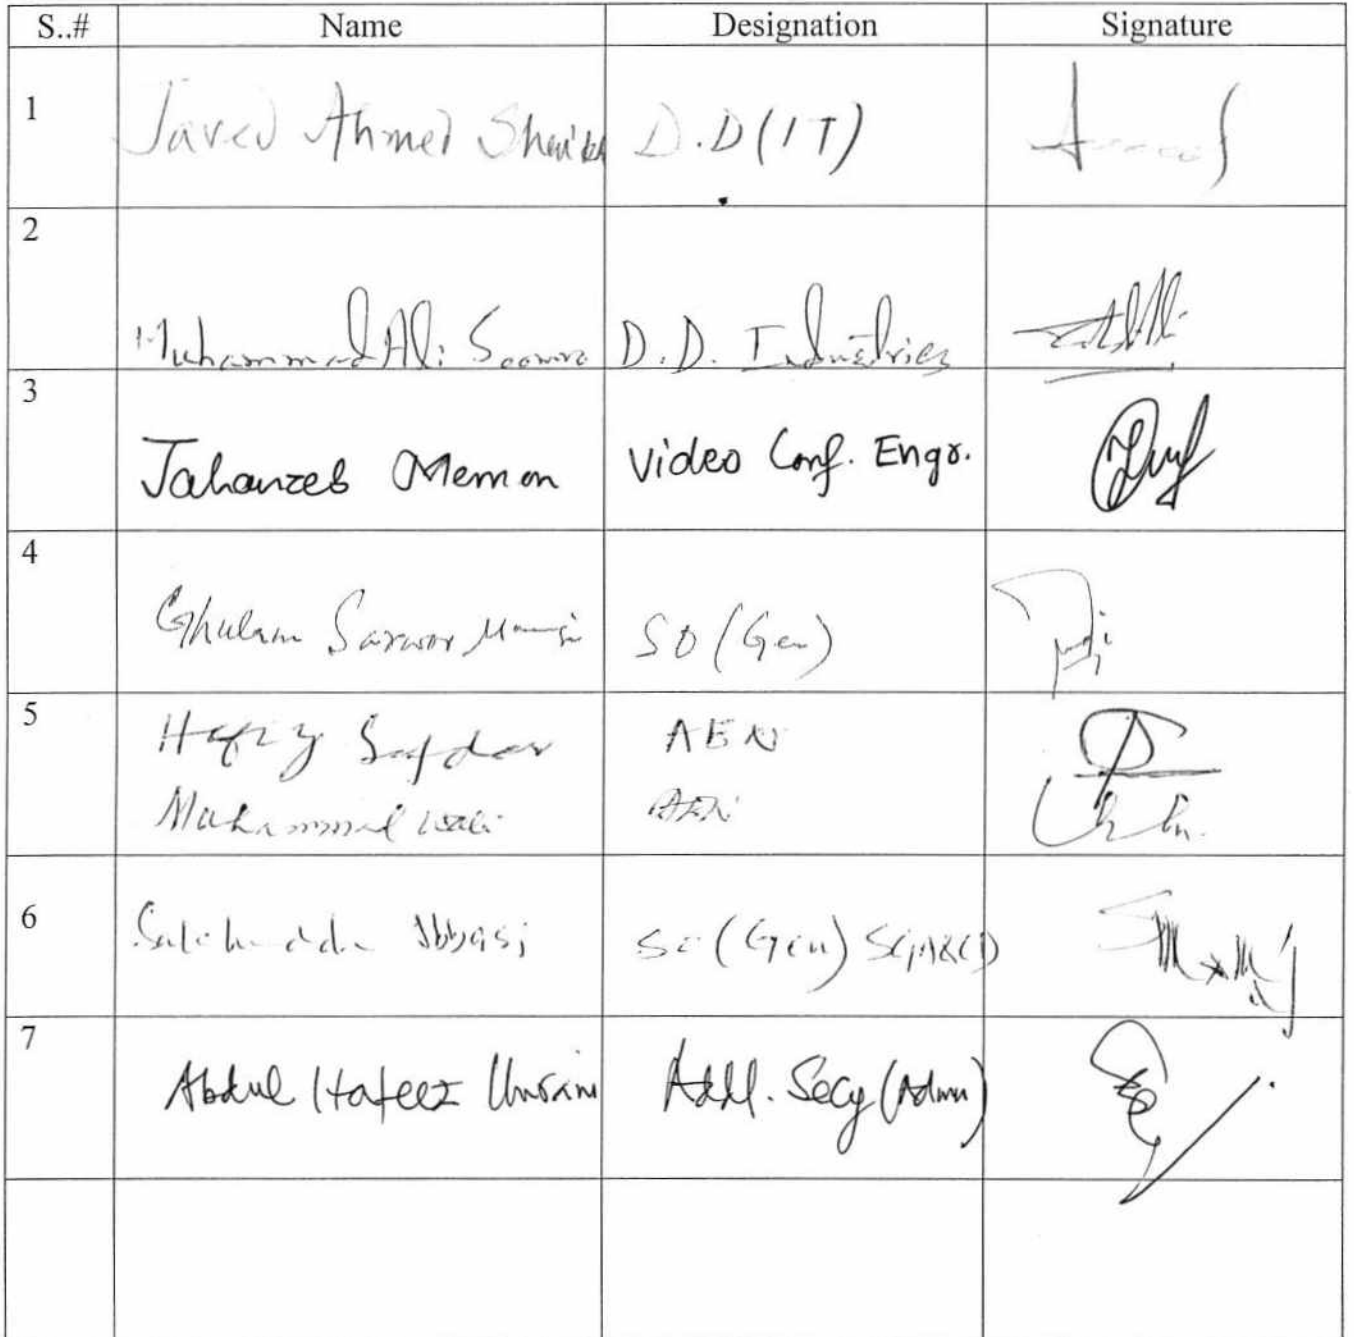 S..# Name Designation Signature
1 Javed Ahmed Sheikh D.D(IT)
2
Muhammad Ali Soomro D.D. Industries
3
Jahanzeb Memon Video Conf. Engr.
4
Ghulam Sarwar SO (Gen)
5 Hafiz Safdar AEN
Muhammad Wali AEN
6 Abbasi SO (Gen)
7
Abdul Hafeez Addl. Secy (Admn)